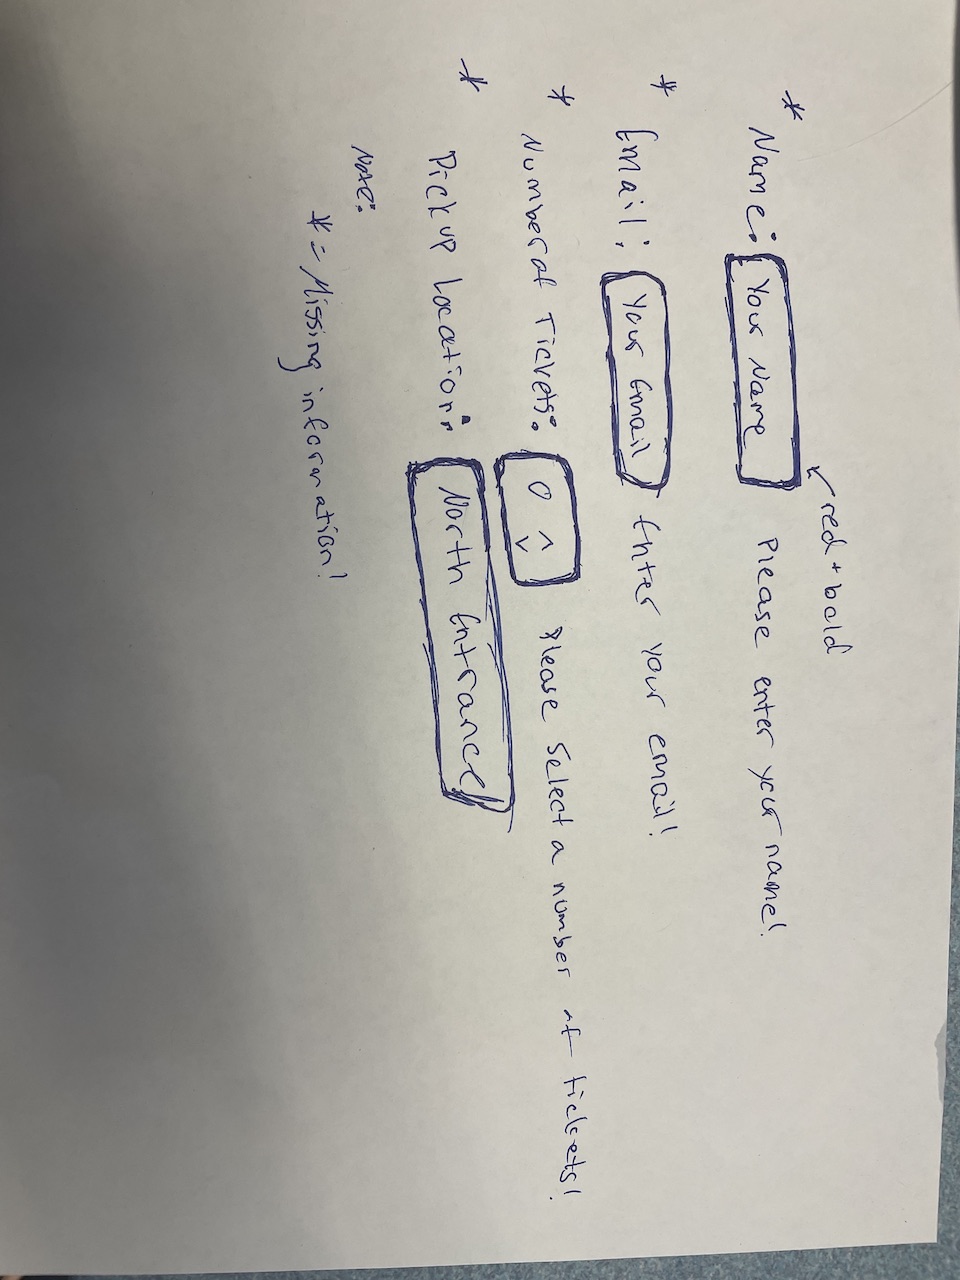 red + bold
* Name: Your Name Please enter your name!
* Email: Your Email Enter your email!
* Number of Tickets: 0 ^ v Please select a number of tickets!
* Pickup Location: North Entrance
Note:
* = Missing information!